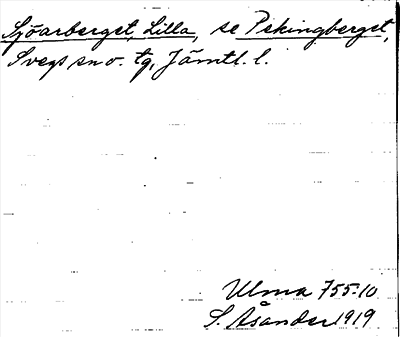 Sjöarberget, Lilla, se Pekingberget,
Svegs sn o. tg, Jämtl. l.
Ulma 755:10
S. Åsander 1919